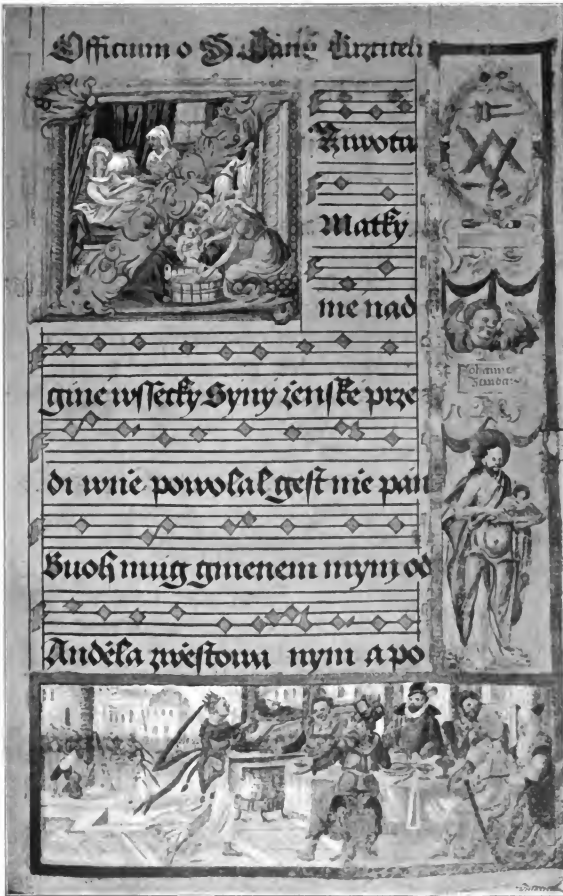 Officium o S. Janu Krztiteli
Ziwota
Matky
me nad
gine wssecky Syny ženske prze
di wnie powolal gest mie pan
Buoh muig gmenem mym od
Anděla zwěstowa nym a po
Johannes